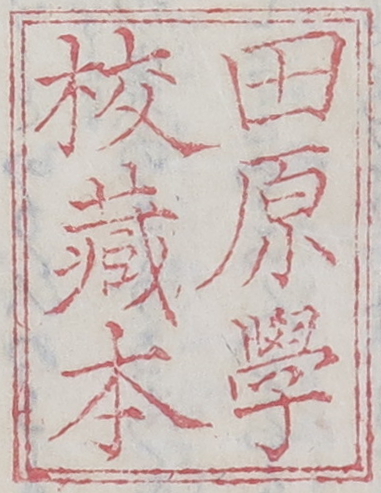 田原學
校藏本